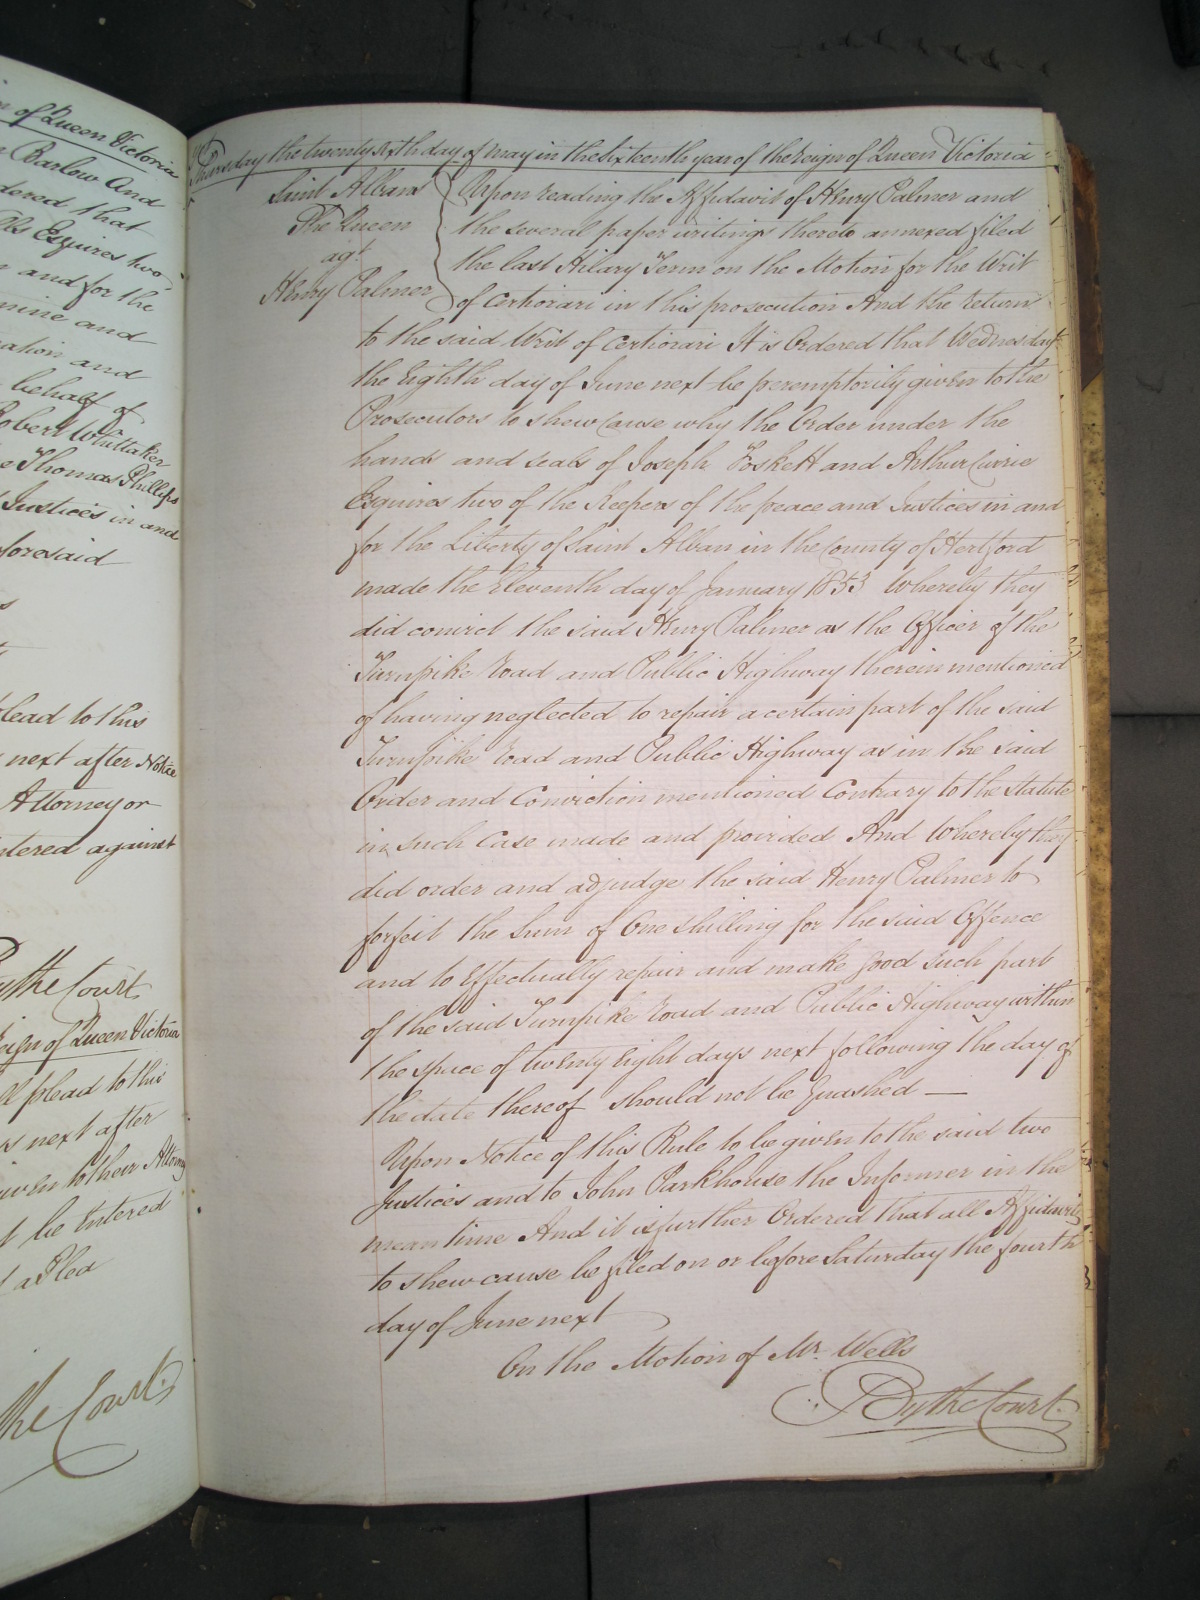 of Queen Victoria
Barlow and
dered that
Esquires two
and for the
mine and
ation and
behalf of
Robert Whittaker
Thomas Phillips
Justices in and
foresaid
plead to this
next after Notice
Attorney or
ntered against
By the Court
eign of Queen Victoria
plead to this
next after
iven to their Attorney
be Entered
a Plea
the Court
Thursday the twenty sixth day of May in the sixteenth year of the reign of Queen Victoria
Saint Alban
The Queen
agt
Henry Palmer
Upon reading the Affidavit of Henry Palmer and
the several paper writings thereto annexed filed
the last Hilary Term on the Motion for the Writ
of Certiorari in this prosecution And the return
to the said Writ of Certiorari It is Ordered that Wednesday
the Eighth day of June next be peremptorily given to the
Prosecutors to shew Cause why the Order under the
hands and seals of Joseph Foskett and Arthur Currie
Esquires two of the Keepers of the peace and Justices in and
for the Liberty of Saint Alban in the County of Hertford
made the Eleventh day of January 1853 Whereby they
did convict the said Henry Palmer as the Officer of the
Turnpike road and Public Highway therein mentioned
of having neglected to repair a certain part of the said
Turnpike road and Public Highway as in the said
Order and Conviction mentioned Contrary to the Statute
in such Case made and provided And Whereby they
did order and adjudge the said Henry Palmer to
forfeit the Sum of One shilling for the said Offence
and to Effectually repair and make good such part
of the said Turnpike road and Public Highway within
the space of twenty Eight days next following the day of
the date thereof should not be Quashed —
Upon Notice of this Rule to be given to the said two
Justices and to John Parkhouse the Informer in the
mean time And it is further Ordered that all Affidavits
to shew cause be filed on or before Saturday the fourth
day of June next
On the Motion of Mr. Wells
By the Court